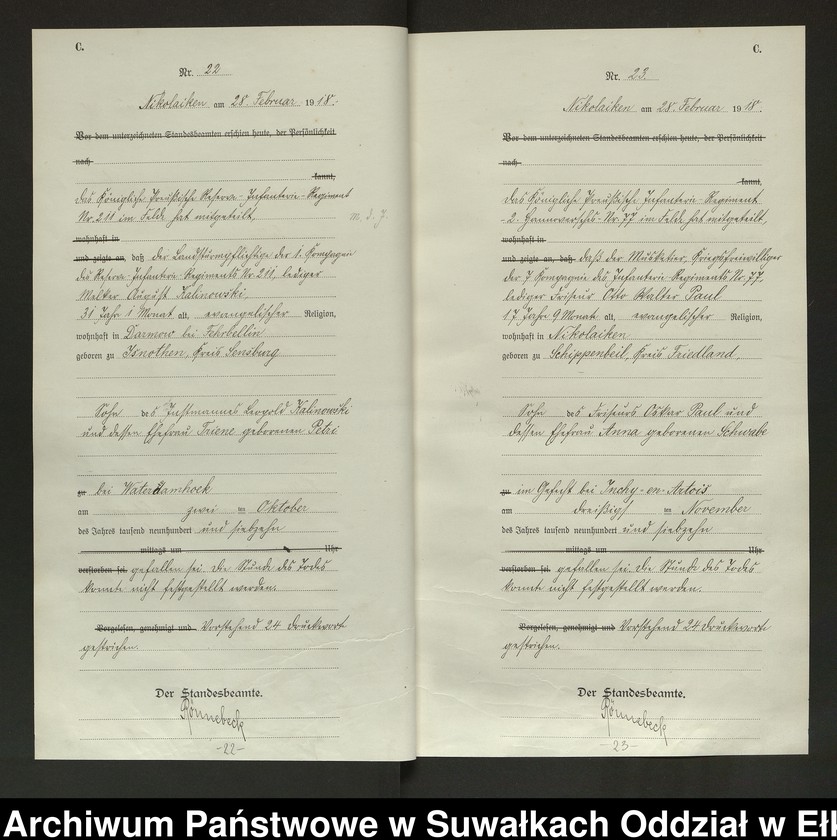 C.
Nr. 22
Nikolaiken am 28. Februar 1918.
Vor dem unterzeichneten Standesbeamten erschien heute, der Persönlichkeit
nach
kannt,
das Königliche Preußische Reserve-Infanterie-Regiment
Nr. 211 im Felde hat mitgeteilt,
wohnhaft in
und zeigte an, daß der Landsturmpflichtige der 1. Kompagnie
des Reserve-Infanterie-Regiments Nr. 211, lediger
Melker August Kalinowski,
31 Jahr 1 Monat alt, evangelischer Religion,
wohnhaft in Darmow bei Fehrbellin
geboren zu Isnothen, Kreis Sensburg
Sohn des Instmannes Leopold Kalinowski
und dessen Ehefrau Triene geborenen Petri
zu bei Waterdamhoek
am zwei ten Oktober
des Jahres tausend neunhundert und siebzehn
mittags um Uhr
verstorben sei. gefallen sei. Die Stunde des Todes
konnte nicht festgestellt werden.
Vorgelesen, genehmigt und Vorstehend 24 Druckworte
gestrichen.
Der Standesbeamte.
Rönnebeck
-22-
C.
Nr. 23.
Nikolaiken am 28. Februar 1918.
Vor dem unterzeichneten Standesbeamten erschien heute, der Persönlichkeit
nach
kannt,
das Königliche Preußische Infanterie-Regiment
-2. Hannoversches-Nr. 77 im Felde hat mitgeteilt,
wohnhaft in
und zeigte an, daß daß der Musketier, Kriegsfreiwilliger
der 7 Kompagnie des Infanterie-Regiments Nr. 77,
lediger Friseur Otto Walter Paul
17 Jahre 9 Monat alt, evangelischer Religion,
wohnhaft in Nikolaiken
geboren zu Schippenbeil, Kreis Friedland,
Sohn des Friseurs Oskar Paul und
dessen Ehefrau Anna geborenen Schwabe
zu im Gefecht bei Inchy-en-Artois
am dreißigs ten November
des Jahres tausend neunhundert und siebzehn
mittags um Uhr
verstorben sei. gefallen sei. Die Stunde des Todes
konnte nicht festgestellt werden.
Vorgelesen, genehmigt und Vorstehend 24 Druckworte
gestrichen.
Der Standesbeamte.
Rönnebeck
-23-
Archiwum Państwowe w Suwałkach Oddział w Eł